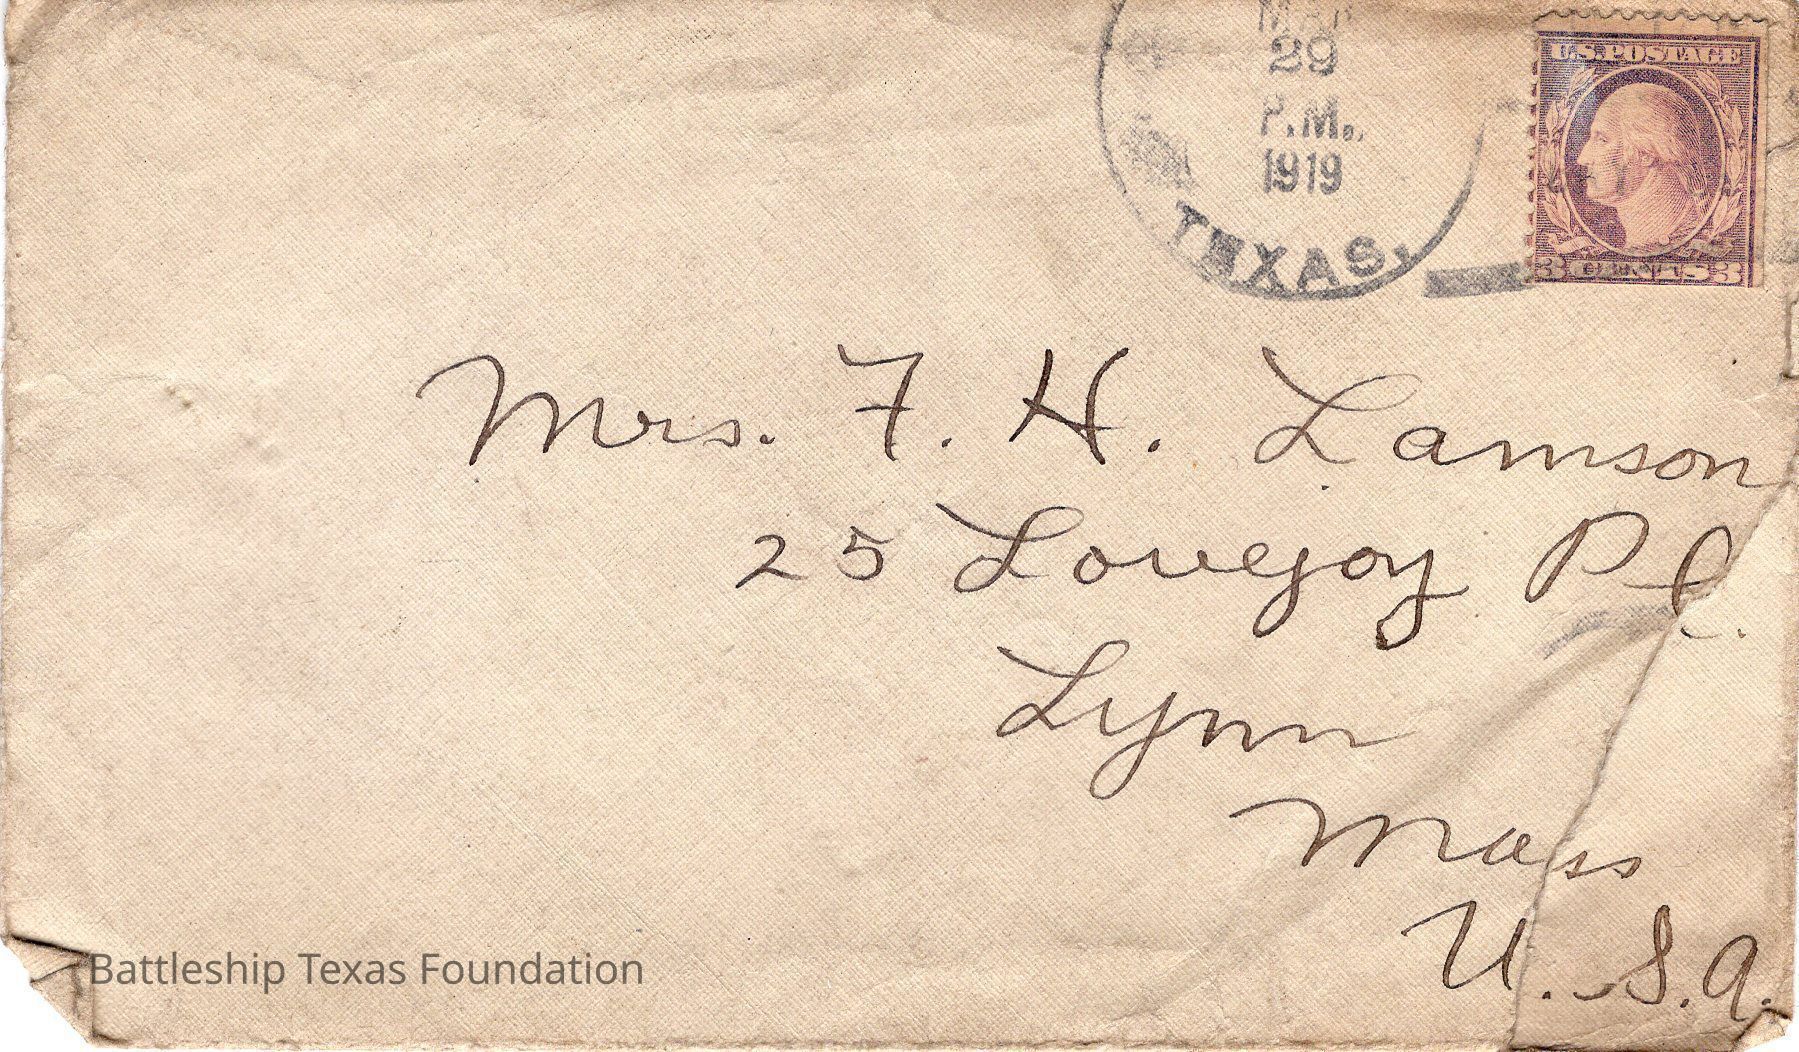 MAR
29
P.M.
1919
TEXAS.
U.S. POSTAGE
3 CENTS 3
Mrs. F. H. Lamson
25 Lovejoy Pl.
Lynn
Mass
U. S. A.
Battleship Texas Foundation